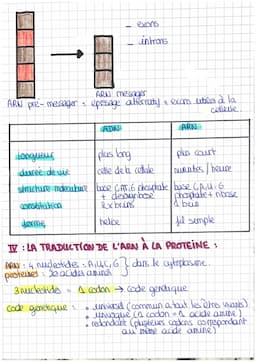 exons
introns
ARN messager
ARN pré-messager : épissage alternatif = exons utiles à la cellule.
ADN ARN
longueur plus long plus court
durée de vie celle de la cellule minutes / heure
structure moléculaire base C,A,T,G phosphate + désoxyribose base C,A,U,G phosphate + ribose
constitution 2 brins 1 brin
forme hélice fil simple
IV : LA TRADUCTION DE L'ARN À LA PROTÉINE :
ARN : 4 nucléotides : A,U,C,G } dans le cytoplasme.
protéines : 20 acides aminés
3 nucléotides = 1 codon → code génétique
code génétique : • universel (commun à tous les êtres vivants)
• univoque (1 codon = 1 acide aminé)
• redondant (plusieurs codons correspondant au même acide aminé)